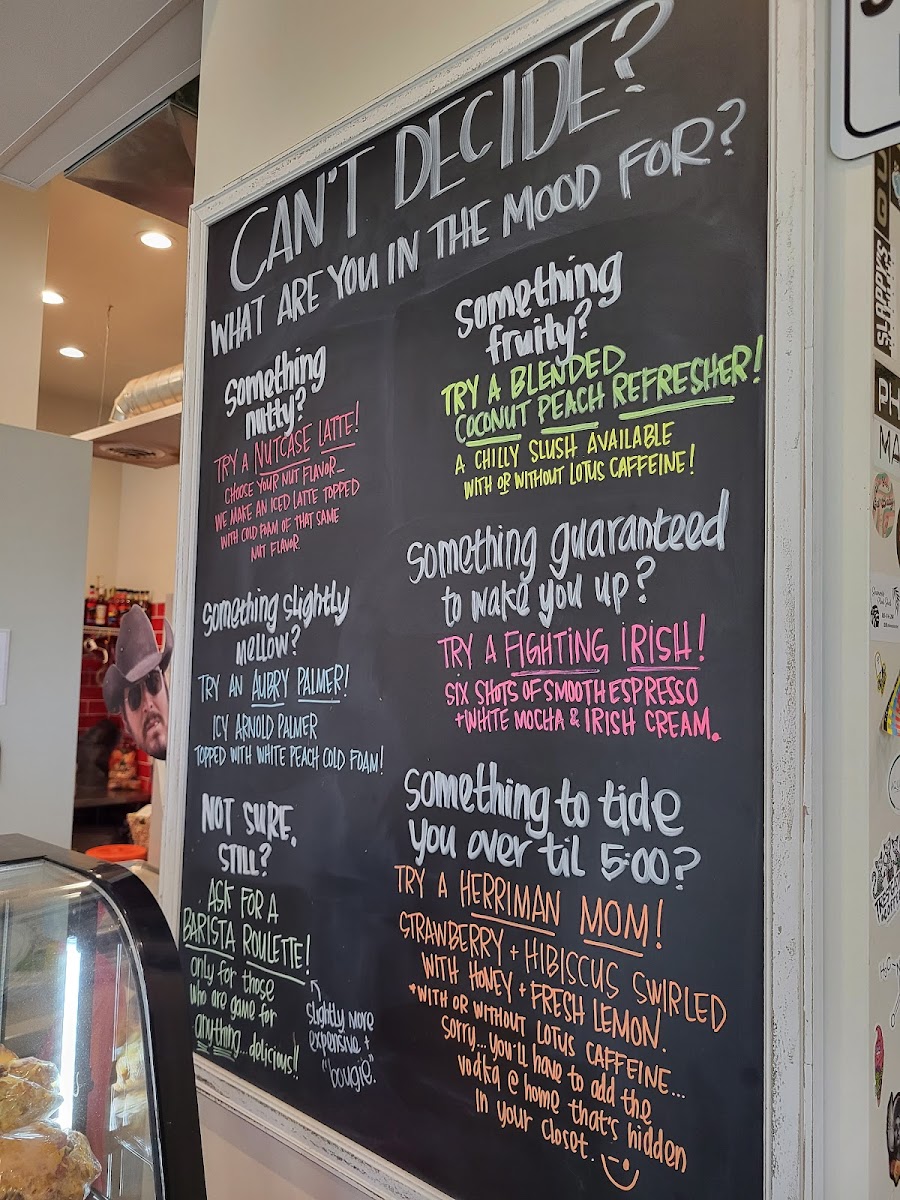 CAN'T DECIDE?
WHAT ARE YOU IN THE MOOD FOR?
Something
nutty?
TRY A NUTCASE LATTE!
CHOOSE YOUR NUT FLAVOR...
WE MAKE AN ICED LATTE TOPPED
WITH COLD FOAM OF THAT SAME
NUT FLAVOR
Something slightly
mellow?
TRY AN AUBRY PALMER!
ICY ARNOLD PALMER
TOPPED WITH WHITE PEACH COLD FOAM!
NOT SURE,
STILL?
ASK FOR A
BARISTA ROULETTE!
only for those
who are game for
anything...delicious!!
slightly more
expensive +
"bougie".
Something
fruity?
TRY A BLENDED
COCONUT PEACH REFRESHER!
A CHILLY SLUSH AVAILABLE
WITH OR WITHOUT LOTUS CAFFEINE!
Something guaranteed
to wake you up?
TRY A FIGHTING IRISH!
SIX SHOTS OF SMOOTH ESPRESSO
+WHITE MOCHA & IRISH CREAM.
Something to tide
you over til 5:00?
TRY A HERRIMAN MOM!
STRAWBERRY + HIBISCUS SWIRLED
WITH HONEY + FRESH LEMON.
*WITH OR WITHOUT LOTUS CAFFEINE...
Sorry...you'll have to add the
vodka @ home that's hidden
in your closet.
SLAPPY'S
PH
MA